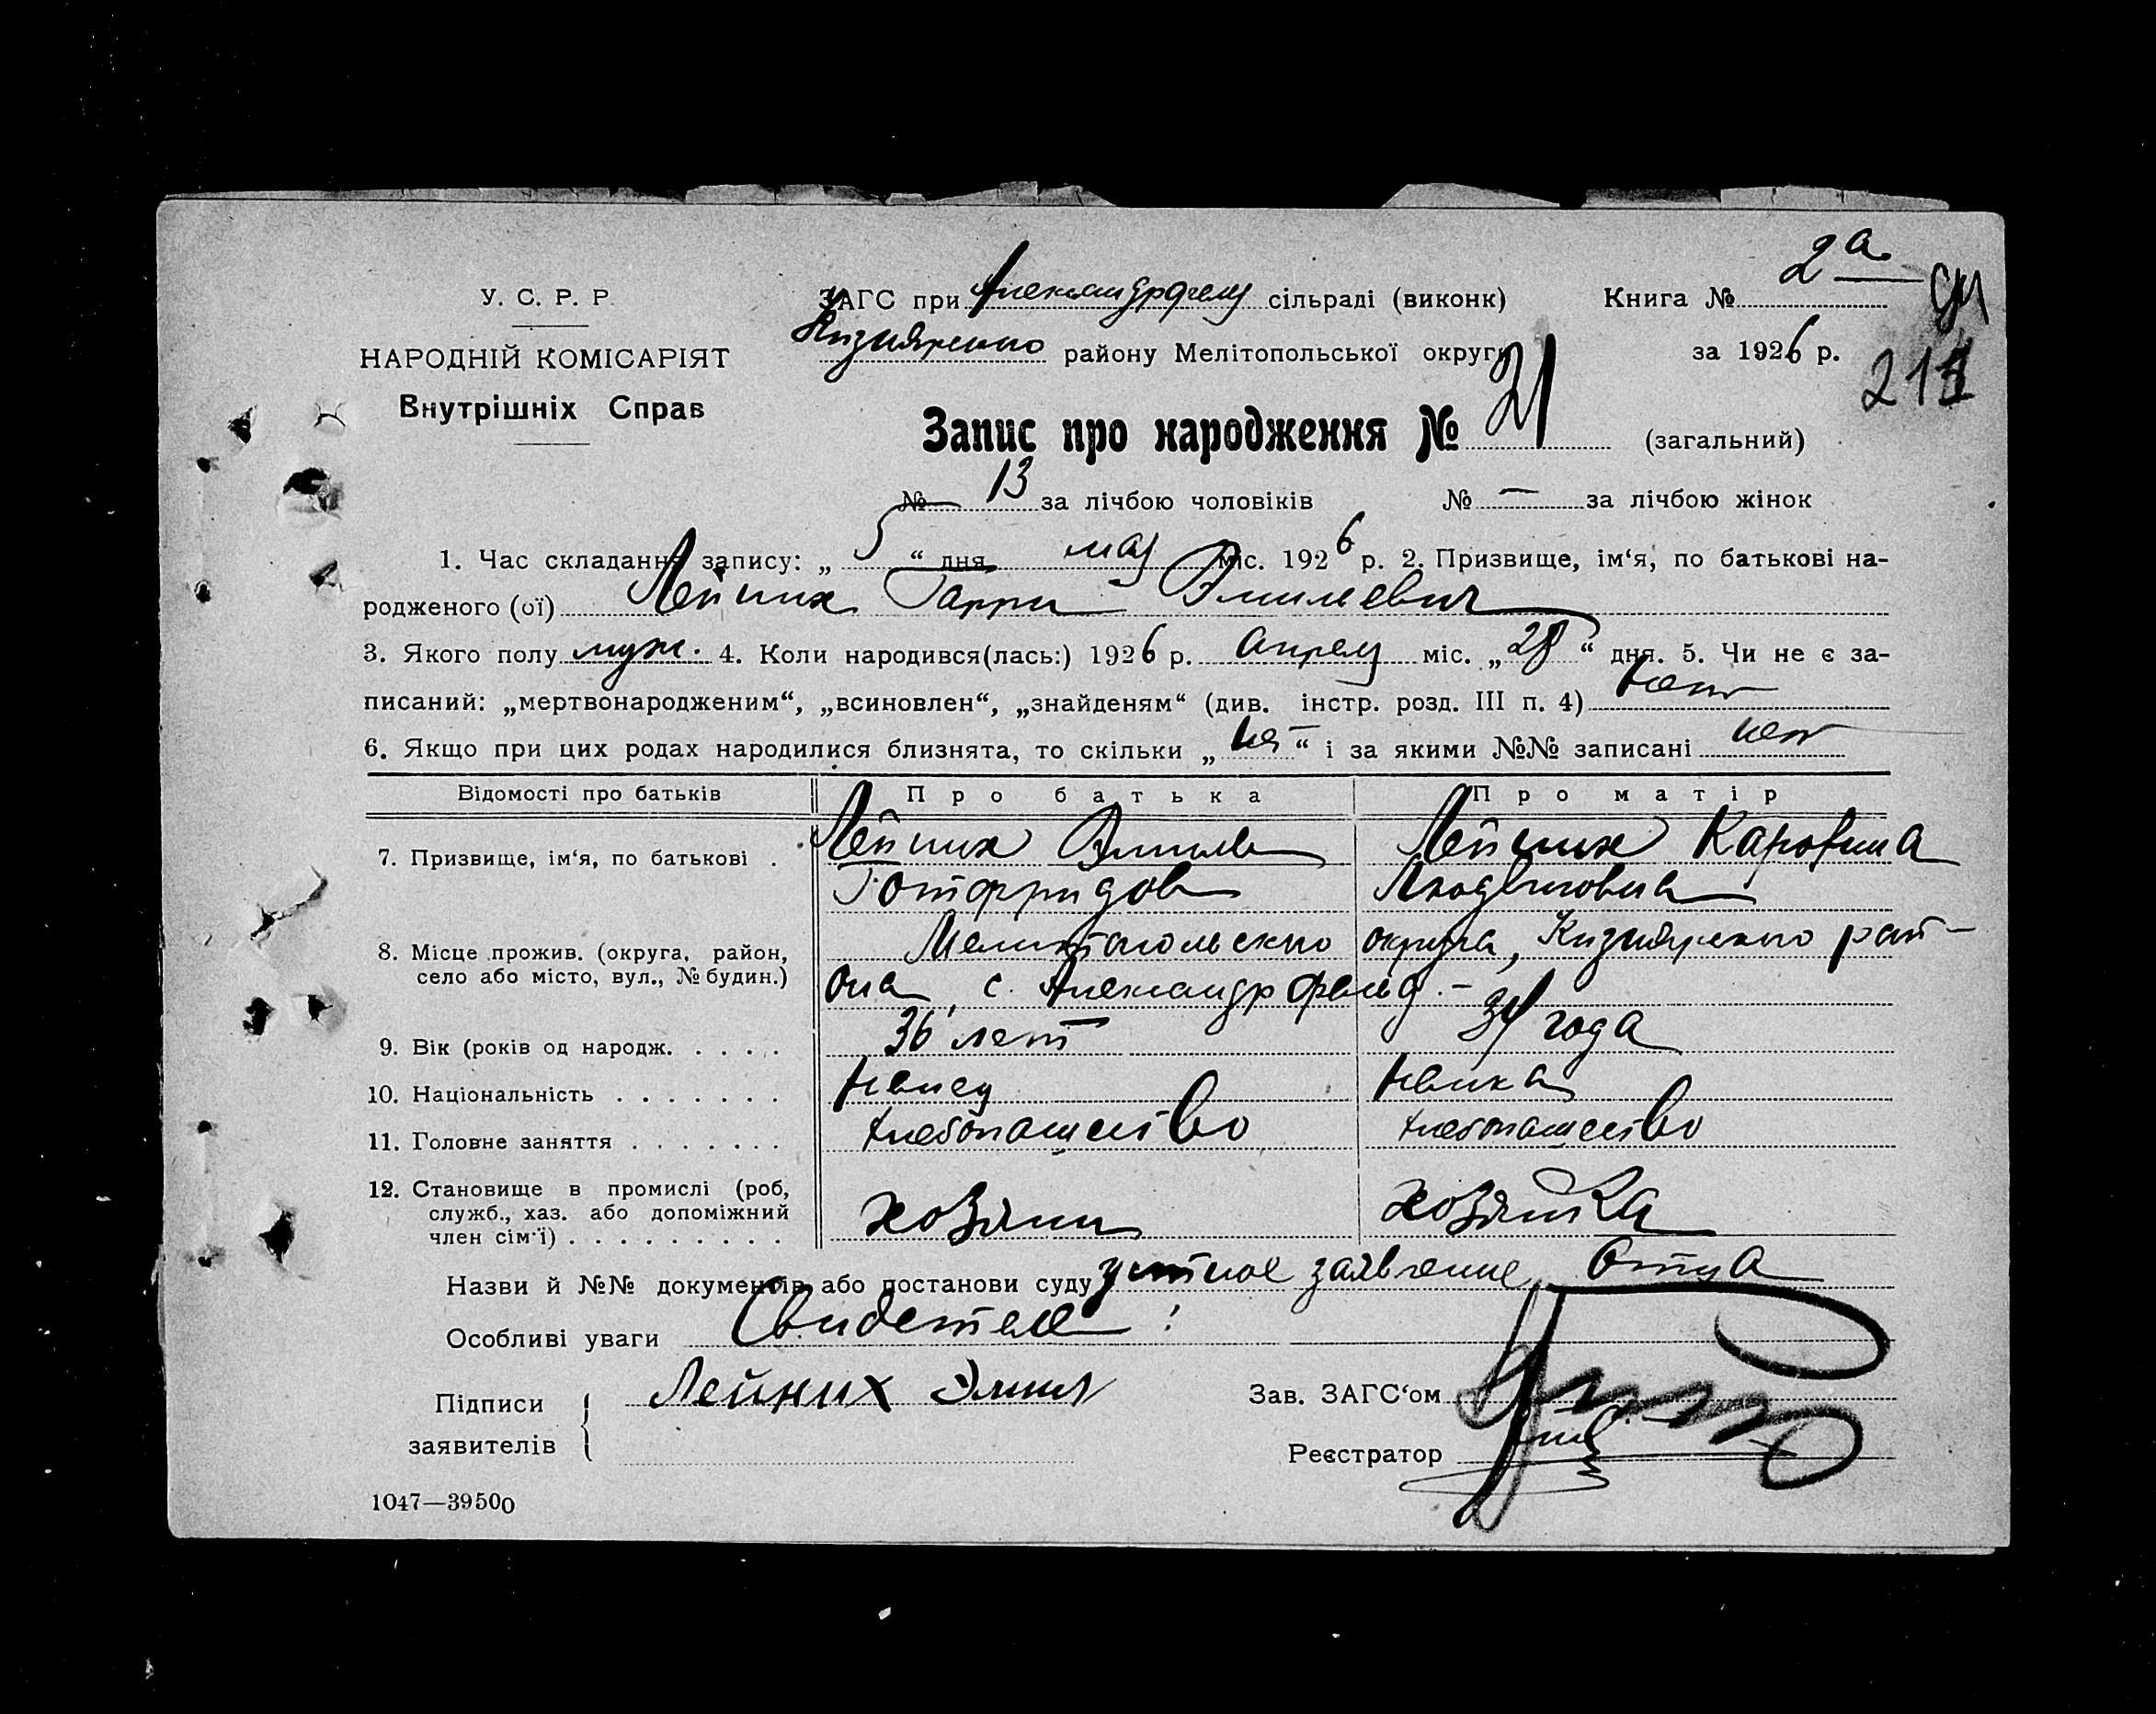 У. С. Р. Р.
НАРОДНІЙ КОМІСАРІЯТ
Внутрішніх Справ
ЗАГС при Александрфелд сільраді (виконк)
Кизиярского району Мелітопольської округи
Книга № 2а
за 1926 р.
211
Запис про народження № 21 (загальний)
№ 13 за лічбою чоловіків № — за лічбою жінок
1. Час складання запису: „ 5 “ дня мая міс. 1926 р. 2. Призвище, ім‘я, по батькові на-
родженого (ої) Лейних Гарри Эмилевич
3. Якого полу муж. 4. Коли народився(лась:) 1926 р. апреля міс. „ 28 “ дня. 5. Чи не є за-
писаний: „мертвонародженим“, „всиновлен“, „знайденям“ (див. інстр. розд. III п. 4) нет
6. Якщо при цих родах народилися близнята, то скільки „ нет “ і за якими №№ записані нет
Відомості про батьків Про батька Про матір
7. Призвище, ім‘я, по батькові . Лейних Эмиль Лейних Каролина
Готфридов Людвиговна
8. Місце прожив. (округа, район, село або місто, вул., № будин.) Мелитопольского округа, Кизиярского рай-
она, с. Александрфельд. –
9. Вік (років од народж. . . . . 36 лет года
10. Національність . . . . . . . немец немка
11. Головне заняття . . . . . . . хлебопашество хлебопашество
12. Становище в промислі (роб,
служб., хаз. або допоміжний
член сім‘ї) . . . . . . . . . хозяин хозяйка
Назви й №№ документів або постанови суду устное заявление отца
Особливі уваги Свидетели :
Підписи
заявителів
Лейних Эмил
Зав. ЗАГС‘ом
Реєстратор
1047—39500